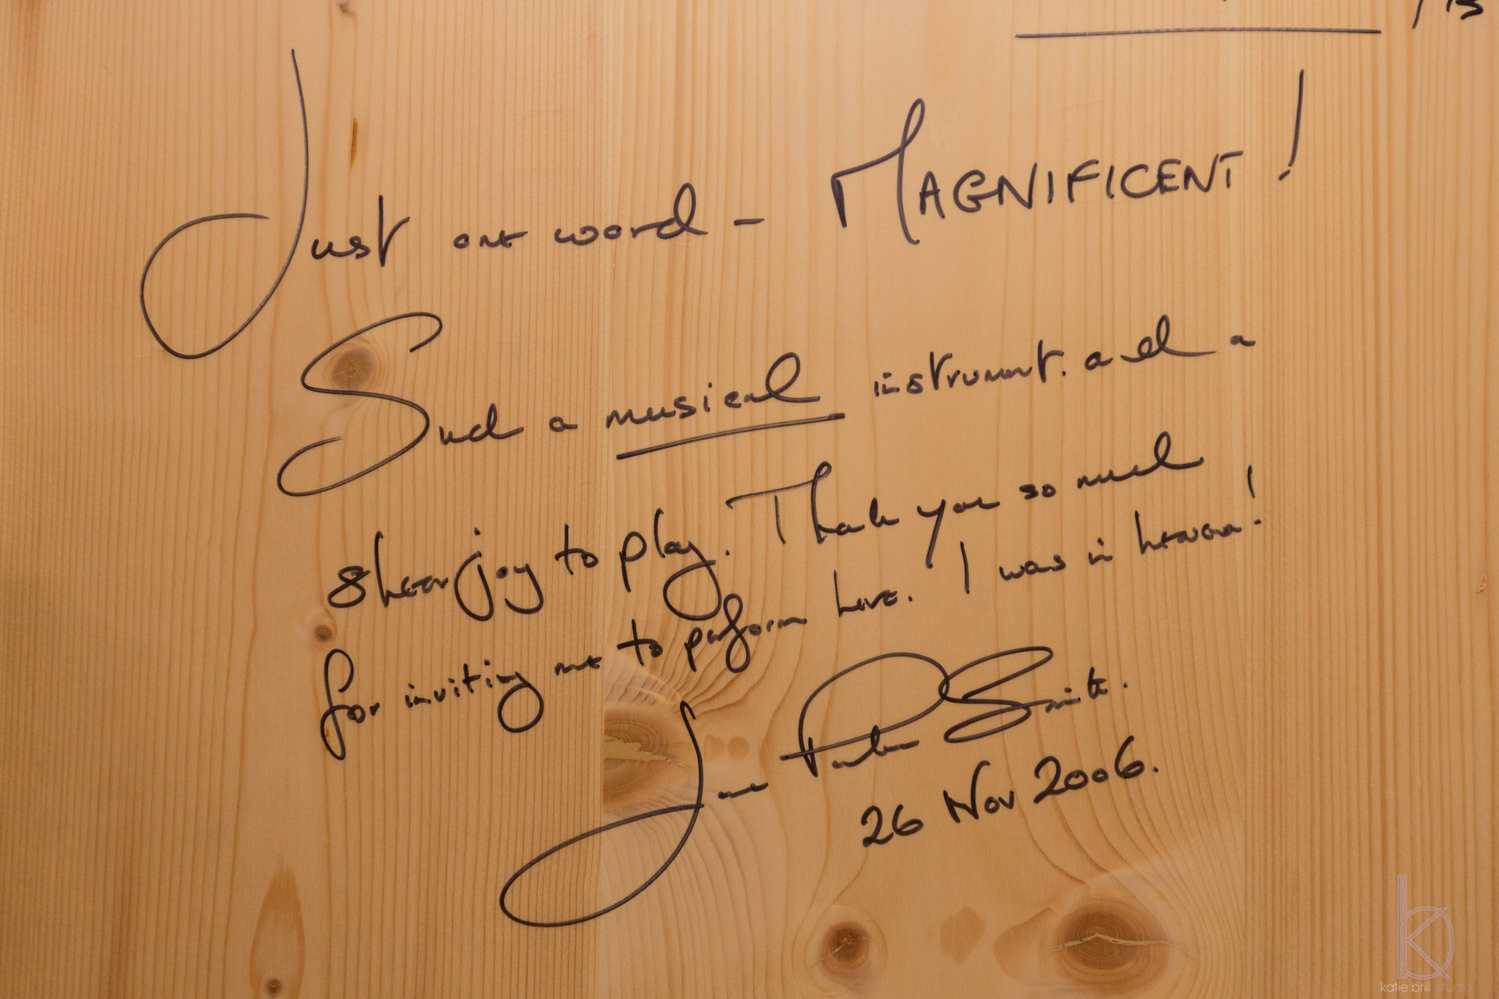 Just one word - MAGNIFICENT!
Such a musical instrument. and a
sheer joy to play. Thank you so much
for inviting me to perform here. I was in heaven!
Jane Parker Smith.
26 Nov 2006.
katie brill studio